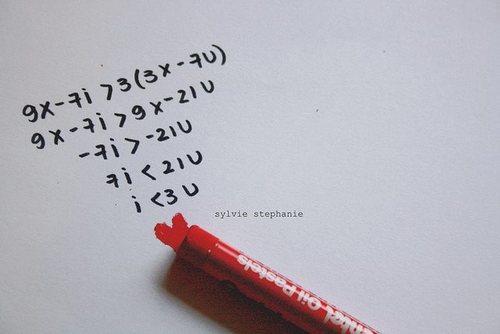 9x-7i>3(3x-7u)
9x-7i>9x-21u
-7i>-21u
7i<21u
i<3u
sylvie stephanie
Oil Pastels